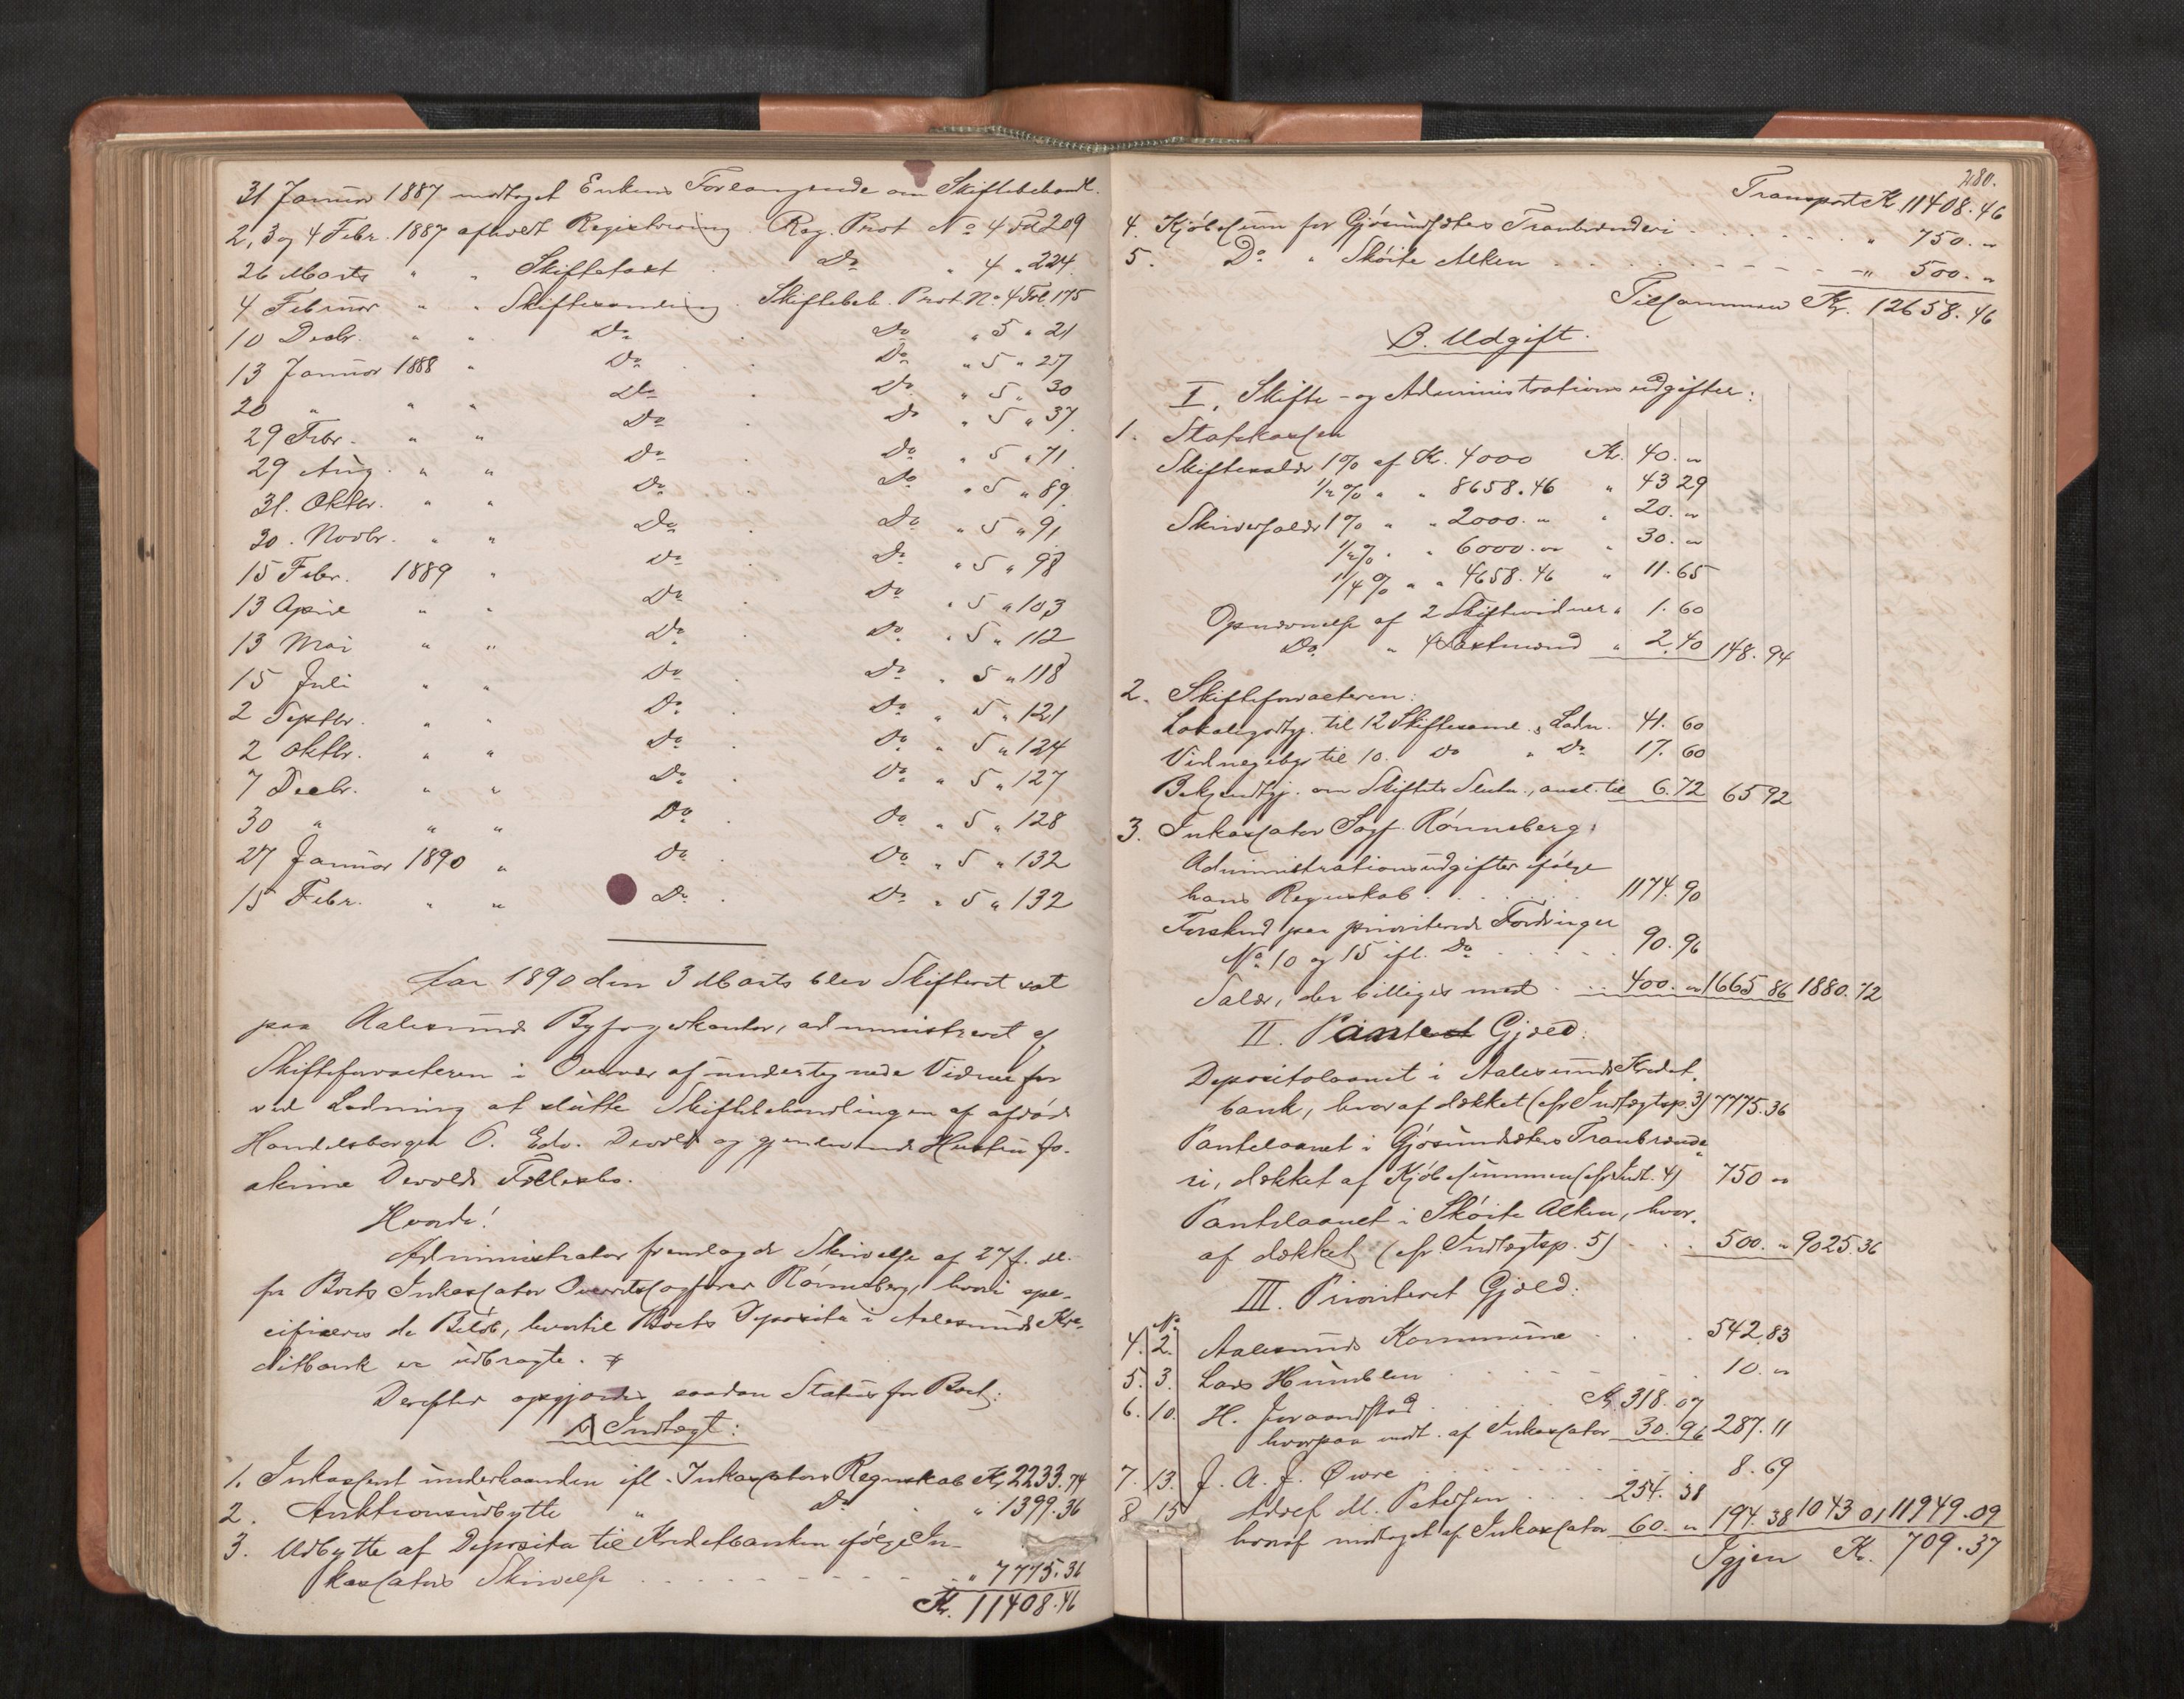 31 Januar 1887 modtaget Enkens Forlangende om Skiftebehandl.
2, 3 og 4 Febr. 1887 afholdt Registrering. Reg. Prot No 4 Fol 209
26 Marts " " Skiftetaxt . Do " 4 " 224
4 Februar " " Skiftesamling . Skiftebeh. Prot No. 4 Fol. 175
10 Decbr. " " Do . Do " 5 " 21
13 Januar 1888 " Do . Do " 5 " 27
20 " " " Do . Do " 5 " 30
29 Febr. " " Do Do " 5 " 37
29 Aug. " " Do . Do " 5 " 71
31. Oktbr. " " Do . Do " 5 " 89
30. Novbr. " " Do . Do " 5 " 91
15 Febr. 1889 " Do . Do " 5 " 98
13 April " " Do . Do " 5 " 103
13 Mai " " Do . Do " 5 " 112
15 Juli " " Do . Do " 5 " 118
2 Septbr. " " Do . Do " 5 " 121
2 Oktbr. " " Do . Do " 5 " 124
7 Decbr. " " Do . Do " 5 " 127
30 " " " Do . Do " 5 " 128
27 Januar 1890 " Do . Do " 5 " 132
15 Febr. " " Do . Do " 5 " 132
Aar 1890 den 3 Marts blev Skifteret sat
paa Aalesunds Byfogedkontor, administreret af
Skifteforvalteren i Overvær af undertegnede Vidner for
ved Ladning at slutte Skiftebehandlingen af afdøde
Handelsborger O. Edv. Devold og gjenlevende Hustru Jo-
akime Devolds Fællesbo.
Hvorda!
Administrator fremlagde Skrivelse af 27 f. M.
fra Boets Inkassator Overretssagfører Rønneberg, hvori spe-
cificeres de Beløb, hvortil Boets Deposita i Aalesunds Kre-
ditbank er udbragte.
Derefter opgjordes saadan Status for Boet:
A Indtægt:
1. Inkasseret underhaanden ifl. Inkassators Regnskab Kr. 2233.74
2. Auktionsudbytte " Do " 1399.36
3. Udbytte af Deposita til Kreditbanken ifølge In-
kassators Skrivelse . . . . . . " 7775.36
Kr. 11408.46
280.
Transport Kr. 11408.46
4. Kjøbesum for Gjøsundsætrs Tranbrænderi . . . . . . " 750. "
5. Do " Skøite Alken . . . . . . " 500. "
Tilsammen Kr. 12658.46
B. Udgift.
I. Skifte- og Administrationsudgifter:
1. Statskassen
Skiftesalær 1% af Kr. 4000 Kr. 40. "
1/2% " " 8658.46 " 43 29
Skriversalær 1% " " 2000. " " 20. "
1/2% " " 6000. " " 30. "
1/4% " " 4658.46 " 11.65
Opnævnelse af 2 Skiftevidner " 1.60
Do. " 4 Taxtmænd " 2.40 148.94
2. Skifteforvalteren:
Lokalegodtgj. til 12 Skiftesaml. & Ladn. 41.60
Vidnegebyr til 10. Do " Do 17.60
Bekjendtgj. om Skiftets Slutn., ansl. til 6.72 65 92
3. Inkassator Sagf. Rønneberg:
Administrationsudgifter ifølge
hans Regnskab . . . . . 1174.90
Forskud paa prioriterede Fordringer
No 10 og 15 ifl. Do . . . . . 90.96
Salær, der billiges med . . . 400. " 1665 86 1880.72
II. Panteret Gjæld:
Depositolaanet i Aalesunds Kredit-
bank, hvoraf dækket (cfr Indtægtsp. 3) 7775.36
Pantelaanet i Gjøsundsætrs Tranbrænde-
ri, dækket af Kjøbesummen (cfr Indt. 4) 750 "
Pantelaanet i Skøite Alken, hvor-
af dækket (cfr Indtægtsp. 5) . . . 500. " 9025.36
III. Prioriteret Gjæld:
No
4. 2. Aalesunds Kommune . . . 542.83
5. 3. Lars Humblen . . . . . . 10. "
6. 10. H. . . . . Kr. 318.07
hvorpaa modt. af Inkassator 30.96 287.11
7. 13. J. A. J. Øwre . . . . . . . 8.69
8 15 Adolf M. Petersen . . . 254.38
hvoraf modtaget af Inkassator 60. " 194.38 1043 01 11949.09
Igjen Kr. 709.37